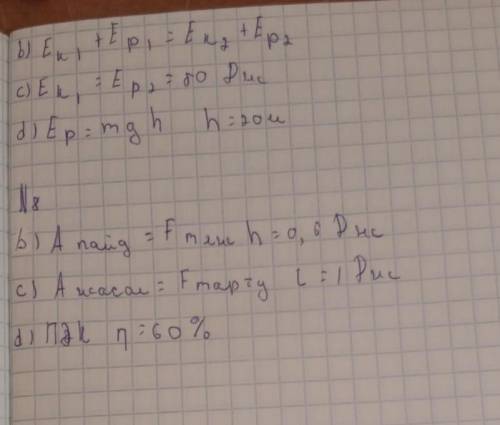 b) Eк₁ + Eр₁ = Eк₂ + Eр₂
c) Eк₁ = Eр₂ = 80 Дж
d) Eр = mgh h = 20м
№8
b) A пайд = F тяж h = 0,6 Дж
c) A жасал = F тарту L = 1 Дж
d) ПӘК η = 60%